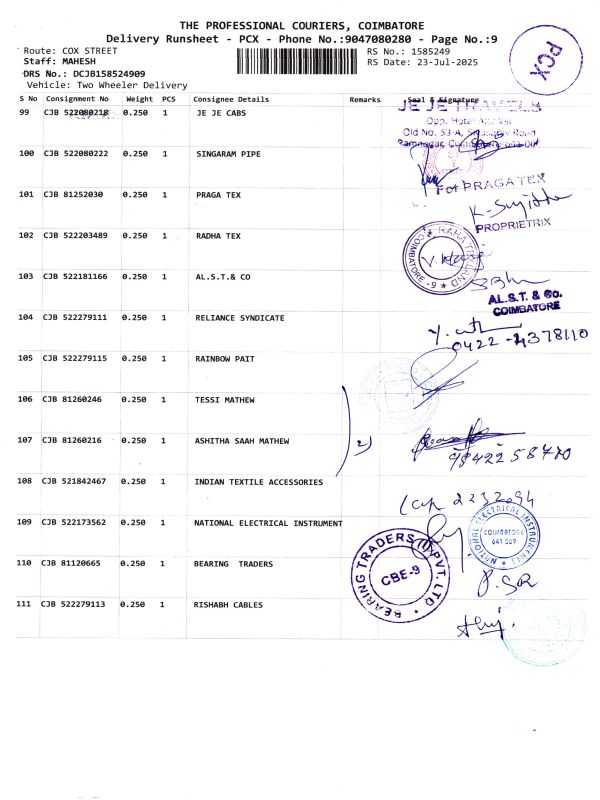 THE PROFESSIONAL COURIERS, COIMBATORE
Delivery Runsheet - PCX - Phone No.:9047080280 - Page No.:9
PCX
Route: COX STREET
RS No.: 1585249
Staff: MAHESH
RS Date: 23-Jul-2025
DRS No.: DCJB158524909
Vehicle: Two Wheeler Delivery
S No Consignment No Weight PCS Consignee Details Remarks Seal & Signature
99 CJB 522080218 0.250 1 JE JE CABS
JE JE TRAVELS
Opp. Hotel
Old No. 53-A, Road
Ramnagar,
100 CJB 522080222 0.250 1 SINGARAM PIPE
101 CJB 81252030 0.250 1 PRAGA TEX
For PRAGA TEX
K. Sujitha
PROPRIETRIX
102 CJB 522203489 0.250 1 RADHA TEX
COIMBATORE -9
103 CJB 522181166 0.250 1 AL.S.T.& CO
AL.S.T. & Co.
COIMBATORE
104 CJB 522279111 0.250 1 RELIANCE SYNDICATE
0422 - 4378110
105 CJB 522279115 0.250 1 RAINBOW PAIT
106 CJB 81260246 0.250 1 TESSI MATHEW
107 CJB 81260216 0.250 1 ASHITHA SAAH MATHEW
2)
9842258470
108 CJB 521842467 0.250 1 INDIAN TEXTILE ACCESSORIES
2232094
109 CJB 522173562 0.250 1 NATIONAL ELECTRICAL INSTRUMENT
NATIONAL ELECTRICAL INSTRUMENTS
COIMBATORE
641 009
110 CJB 81120665 0.250 1 BEARING TRADERS
BEARING TRADERS (I) PVT. LTD
CBE-9
111 CJB 522279113 0.250 1 RISHABH CABLES